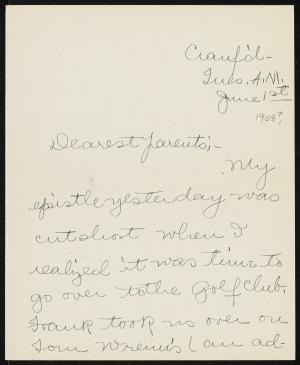 Cranf'd-
Tues. A.M.
June 1st
1908?
Dearest Parents;-
My
epistle yesterday was
cut short when I
realized it was time to
go over to the Golf club.
Frank took us over on
Tom